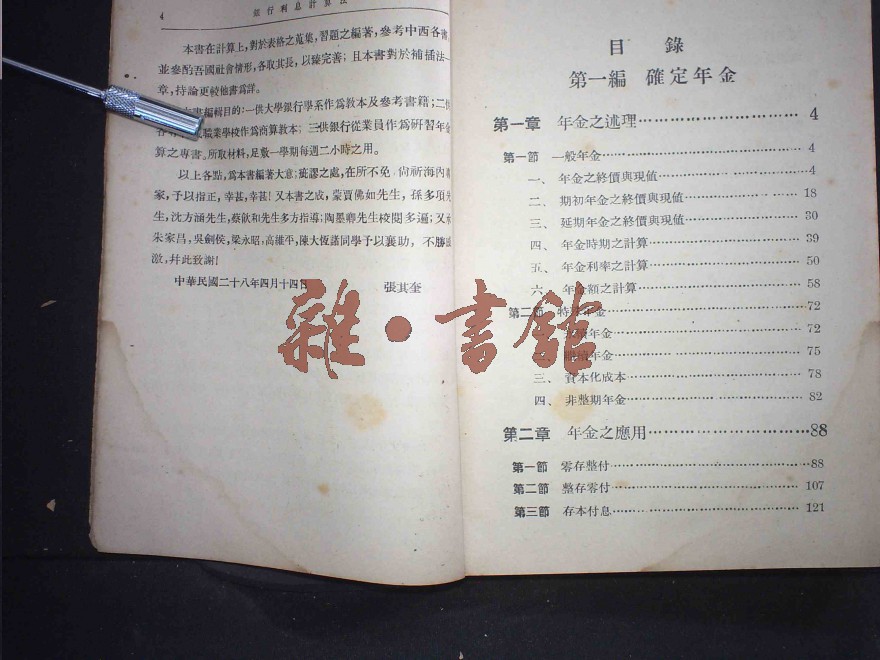 4
銀行利息計算法
本書在計算上，對於表格之蒐集，習題之編著，參考中西各書
並參酌吾國社會情形，各取其長，以臻完善；且本書對於補插法一
章，持論更較他書爲詳。
本書編輯目的：一供大學銀行學系作爲敎本及參考書籍；二供
職業學校作爲商算敎本；三供銀行從業員作爲硏習年金
算之專書。所取材料，足敷一學期每週二小時之用。
以上各點，爲本書編著大意，疵謬之處，在所不免，尙祈海內專
家，予以指正，幸甚，幸甚！又本書之成，蒙賈佛如先生，孫多項先
生，沈方涵先生，蔡飮和先生多方指導；陶墨卿先生校閱多遍；又承
朱家昌，吳劍侯，梁永昭，高維平，陳大恆諸同學予以襄助，不勝感
激，幷此致謝！
中華民國二十八年四月十四日 張其奎
雜·書館
目錄
第一編 確定年金
第一章 年金之述理 4
第一節 一般年金 4
一、 年金之終價與現値 4
二、 期初年金之終價與現値 18
三、 延期年金之終價與現値 30
四、 年金時期之計算 39
五、 年金利率之計算 50
六、 年金額之計算 58
第二節 特殊年金 72
年金 72
年金 75
三、 資本化成本 78
四、 非整期年金 82
第二章 年金之應用 88
第一節 零存整付 88
第二節 整存零付 107
第三節 存本付息 121